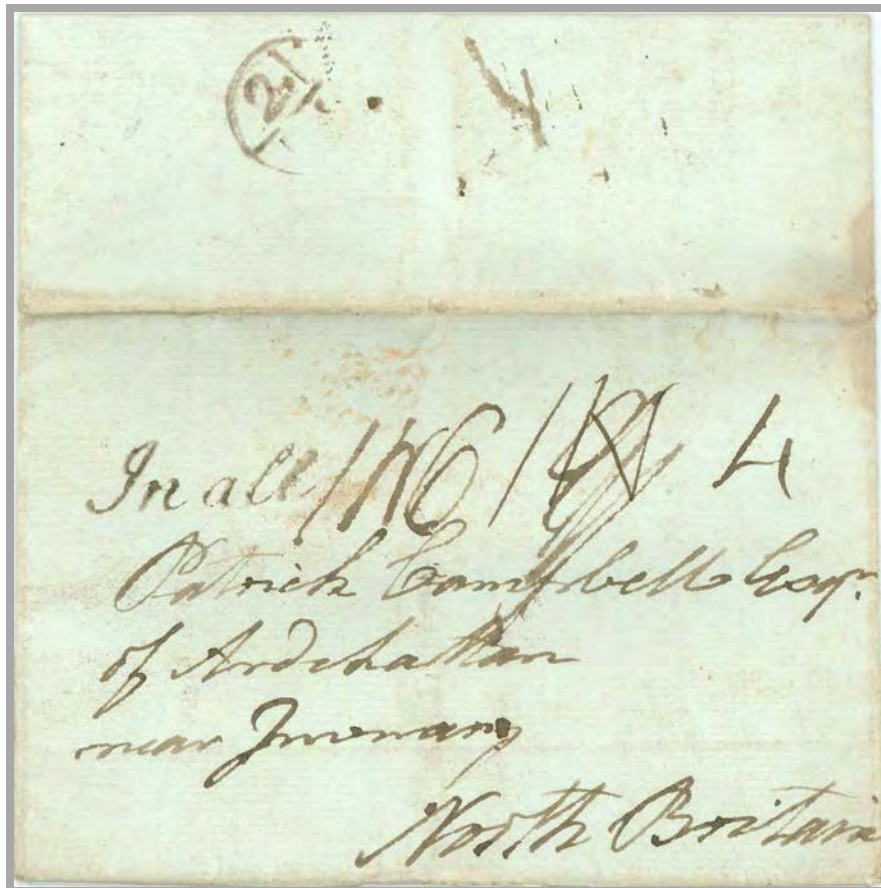 21
In all 1/6 4
Patrick Campbell Esqr.
of Ardchattan
near Inverary
North Britain